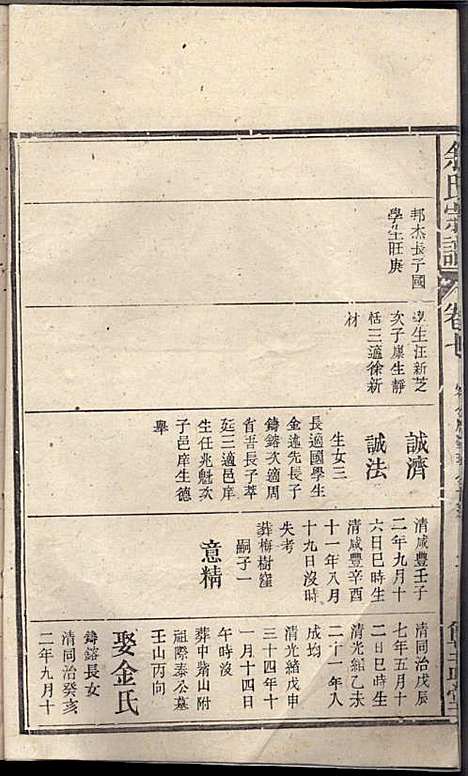 余氏宗譜
卷七
邦杰長子國
學生旺庚
學生汪新芝
次子廩生靜
恬三適徐新
材
誠濟
誠法
生女三
長適國學生
金述先長子
鑄鎔次適周
省吾長子萃
廷三適邑庠
生任兆魁次
子邑庠生德
舉
清咸豐壬子
二年九月十
六日巳時生
清咸豐辛酉
十一年八月
十九日沒時
失考
葬梅樹窪
嗣子一
意精
清同治戊辰
七年五月十
二日巳時生
清光緒乙未
二十一年入
成均
清光緒戊申
三十四年十
一月十四日
午時沒
葬中菊山附
祖際泰公墓
壬山丙向
娶金氏
鑄鎔長女
清同治癸亥
二年九月十